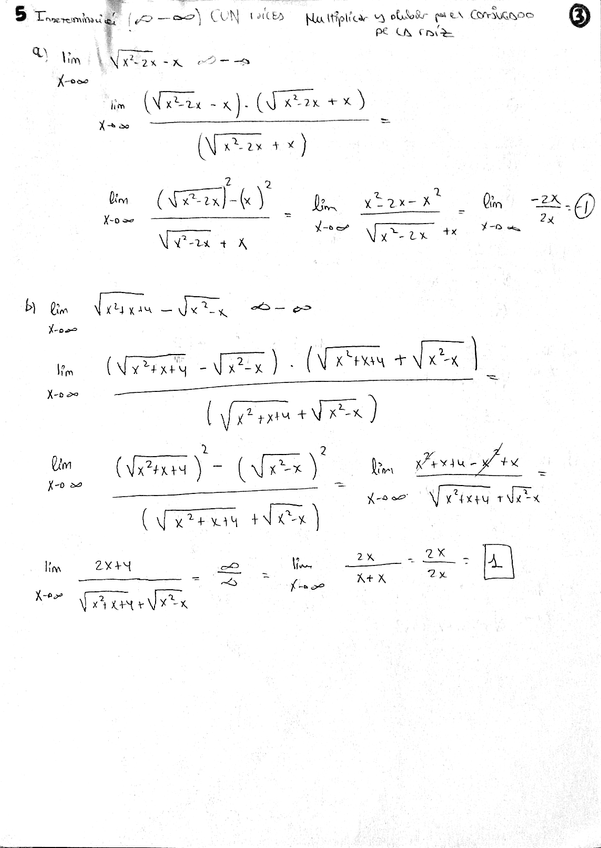 5 Indeterminación (∞ - ∞) CON raíces Multiplicar y dividir por el conjugado DE LA raíz ③
a) lim x→∞ √(x²-2x) - x ∞ - ∞
lim x→∞ ((√(x²-2x) - x) · (√(x²-2x) + x)) / (√(x²-2x) + x) =
lim x→∞ ((√(x²-2x))² - (x)²) / (√(x²-2x) + x) = lim x→∞ (x² - 2x - x²) / (√(x²-2x) + x) = lim x→∞ -2x / 2x = -1
b) lim x→∞ √(x²+x+4) - √(x²-x) ∞ - ∞
lim x→∞ ((√(x²+x+4) - √(x²-x)) · (√(x²+x+4) + √(x²-x))) / (√(x²+x+4) + √(x²-x)) =
lim x→∞ ((√(x²+x+4))² - (√(x²-x))²) / (√(x²+x+4) + √(x²-x)) = lim x→∞ (x²+x+4 - x²+x) / (√(x²+x+4) + √(x²-x)) =
lim x→∞ (2x+4) / (√(x²+x+4) + √(x²-x)) = ∞/∞ = lim x→∞ 2x / (x+x) = 2x / 2x = 1